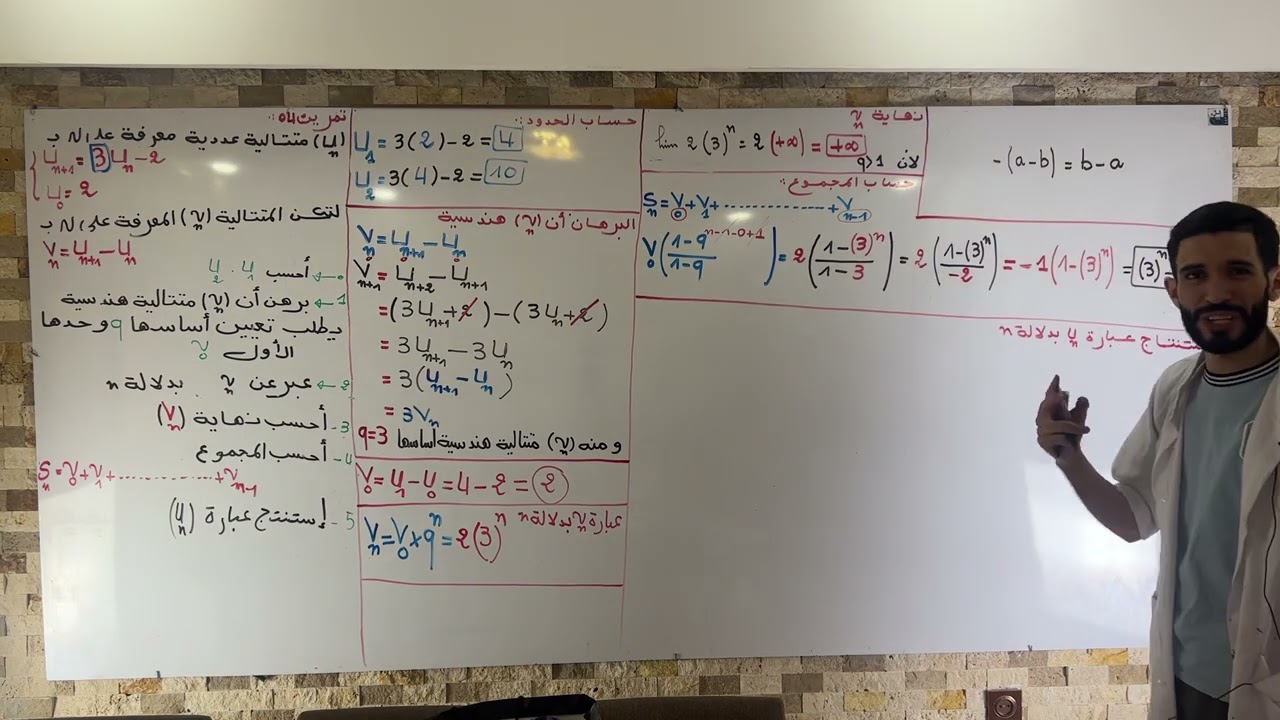 تمرين 04:
(Uₙ) متتالية عددية معرفة على N ب
Uₙ₊₁ = 3Uₙ - 2
U₀ = 2
لتكن المتتالية (Vₙ) المعرفة على N ب
Vₙ = Uₙ₊₁ - Uₙ
0 ← أحسب U₁ . U₂
1 ← برهن أن (Vₙ) متتالية هندسية
يطلب تعيين أساسها q وحدها
الأول V₀
2 ← عبر عن Vₙ بدلالة n
3 - أحسب نهاية (Vₙ)
4 - أحسب المجموع
Sₙ = V₀ + V₁ + ............... + Vₙ₋₁
5 - إستنتج عبارة (Uₙ)
حساب الحدود:
U₁ = 3(2) - 2 = 4
U₂ = 3(4) - 2 = 10
البرهان أن (Vₙ) هندسية
Vₙ = Uₙ₊₁ - Uₙ
Vₙ₊₁ = Uₙ₊₂ - Uₙ₊₁
= (3Uₙ₊₁ + 2) - (3Uₙ + 2)
= 3Uₙ₊₁ - 3Uₙ
= 3(Uₙ₊₁ - Uₙ)
= 3Vₙ
و منه (Vₙ) متتالية هندسية أساسها q=3
V₀ = U₁ - U₀ = 4 - 2 = 2
عبارة Vₙ بدلالة n
Vₙ = V₀ × qⁿ = 2(3)ⁿ
نهاية Vₙ
lim 2(3)ⁿ = 2(+∞) = +∞
لأن q>1
حساب المجموع:
Sₙ = V₀ + V₁ + ............... + Vₙ₋₁
V₀((1-qⁿ⁻¹⁻⁰⁺¹)/(1-q)) = 2((1-(3)ⁿ)/(1-3)) = 2((1-(3)ⁿ)/(-2)) = -1(1-(3)ⁿ) = (3)ⁿ-
-(a-b) = b-a
عبارة Uₙ بدلالة n